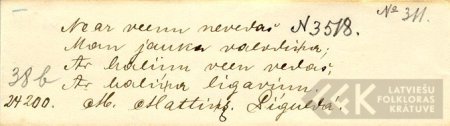 № 311.
Ne ar veenu nevedas̄ N 3518.
Man jauka valodiņa;
Ar bali̇̄ņ veen vedas̄,
Ar baliņa ligaviņ.
38b
24200. M. Mattiņs̄, Siguldā.
LATVIEŠU
FOLKLORAS
KRĀTUVE